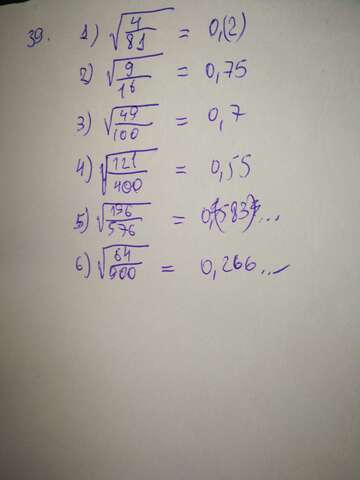 39. 1) √4/81 = 0,(2)
2) √9/16 = 0,75
3) √49/100 = 0,7
4) √121/400 = 0,55
5) √196/576 = 0,583...
6) √64/900 = 0,266...